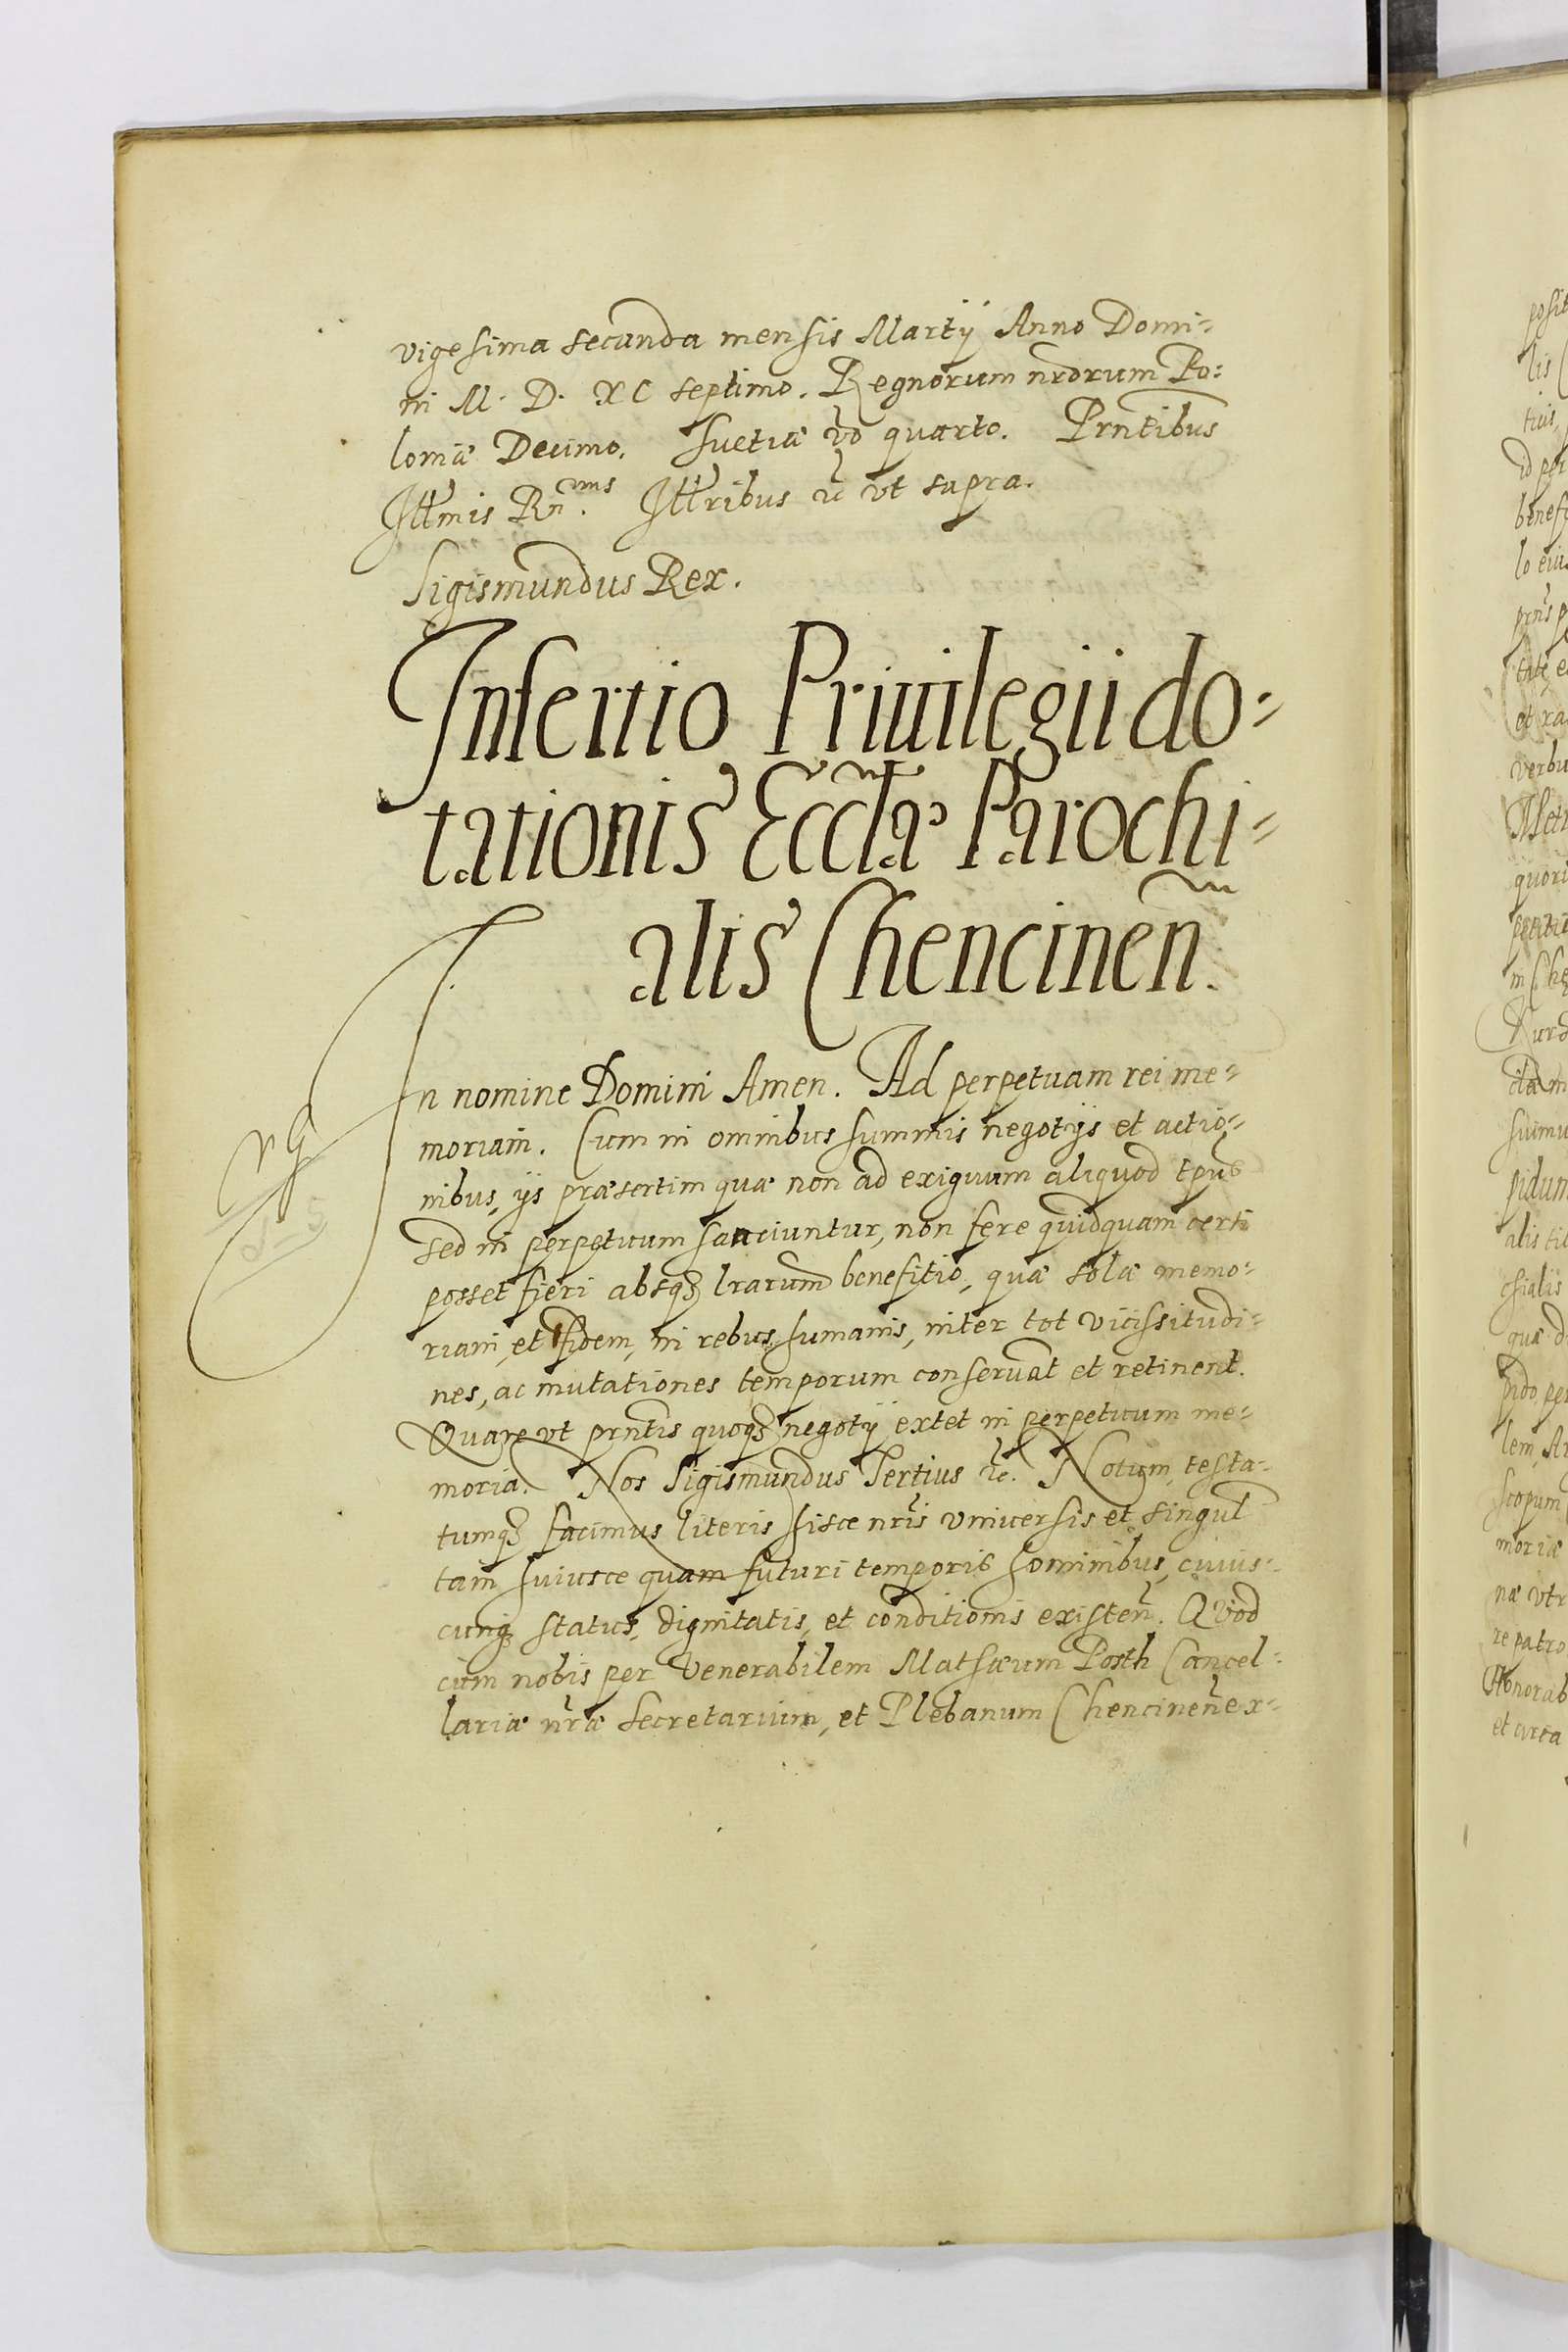 vigesima secunda mensis Martÿ Anno Domi=
ni M. D. XC septimo. Regnorum nrorum Po:
loniæ Decimo. Suetiæ vo quarto. Prntibus
Illmis Rn.mis Illribus etc vt supra.
Sigismundus Rex.
Insertio Priuilegii do=
tationis Eccliæ Parochi=
alis Chencinen.
In nomine Domini Amen. Ad perpetuam rei me=
moriam. Cum in omnibus summis negotÿs et actio=
nibus, ÿs præsertim quæ non ad exiguum aliquod tpus
sed in perpetuum sanciuntur, non fere quidquam certi
posset fieri absqꝫ lrarum benefitio, quæ solæ memo=
riam, et fidem, in rebus humanis, inter tot vicissitudi=
nes, ac mutationes temporum conseruāt et retinent.
Quare vt prntis quoqꝫ negotÿ extet in perpetuum me=
moria. Nos Sigismundus Tertius etc. Notum, testa=
tumqꝫ facimus literis hisce nris vniuersis et singul
tam huiusce quam futuri temporis hominibus, cuius=
cunqꝫ status, dignitatis, et conditionis existen. Quod
cum nobis per Venerabilem Mathæum Posth Cancel=
lariæ nræ Secretarium, et Plebanum Chencinen ex=